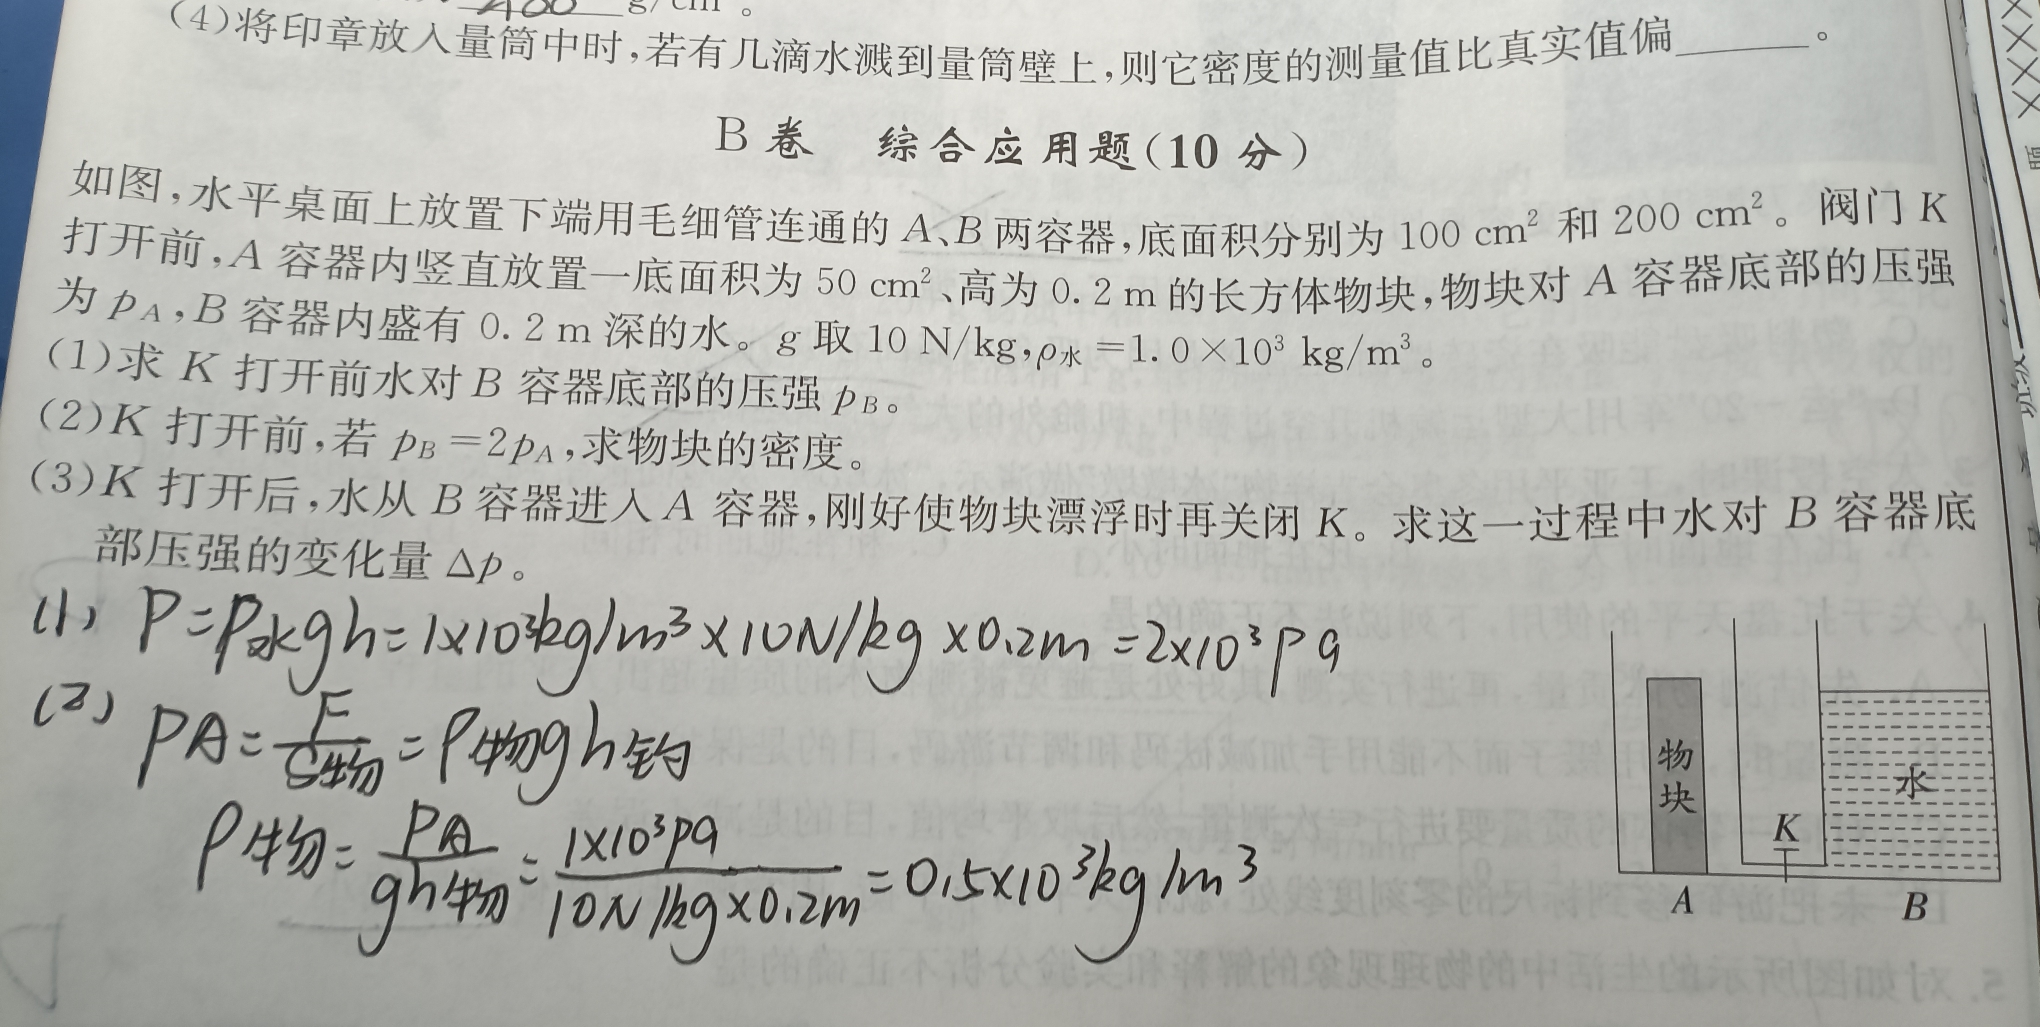 400 g/cm。
(4)将印章放入量筒中时,若有几滴水溅到量筒壁上,则它密度的测量值比真实值偏______。
B卷 综合应用题(10分)
如图,水平桌面上放置下端用毛细管连通的A、B两容器,底面积分别为100 cm²和200 cm²。阀门K
打开前,A容器内竖直放置一底面积为50 cm²、高为0.2 m的长方体物块,物块对A容器底部的压强
为pA,B容器内盛有0.2 m深的水。g取10 N/kg,ρ水=1.0×10³ kg/m³。
(1)求K打开前水对B容器底部的压强pB。
(2)K打开前,若pB=2pA,求物块的密度。
(3)K打开后,水从B容器进入A容器,刚好使物块漂浮时再关闭K。求这一过程中水对B容器底
部压强的变化量Δp。
(1) P=ρ水gh=1×10³kg/m³×10N/kg×0.2m=2×10³Pa
(2) PA=F/S物=ρ物gh物
ρ物=PA/gh物=1×10³Pa/10N/kg×0.2m=0.5×10³kg/m³
物块
水
K
A
B